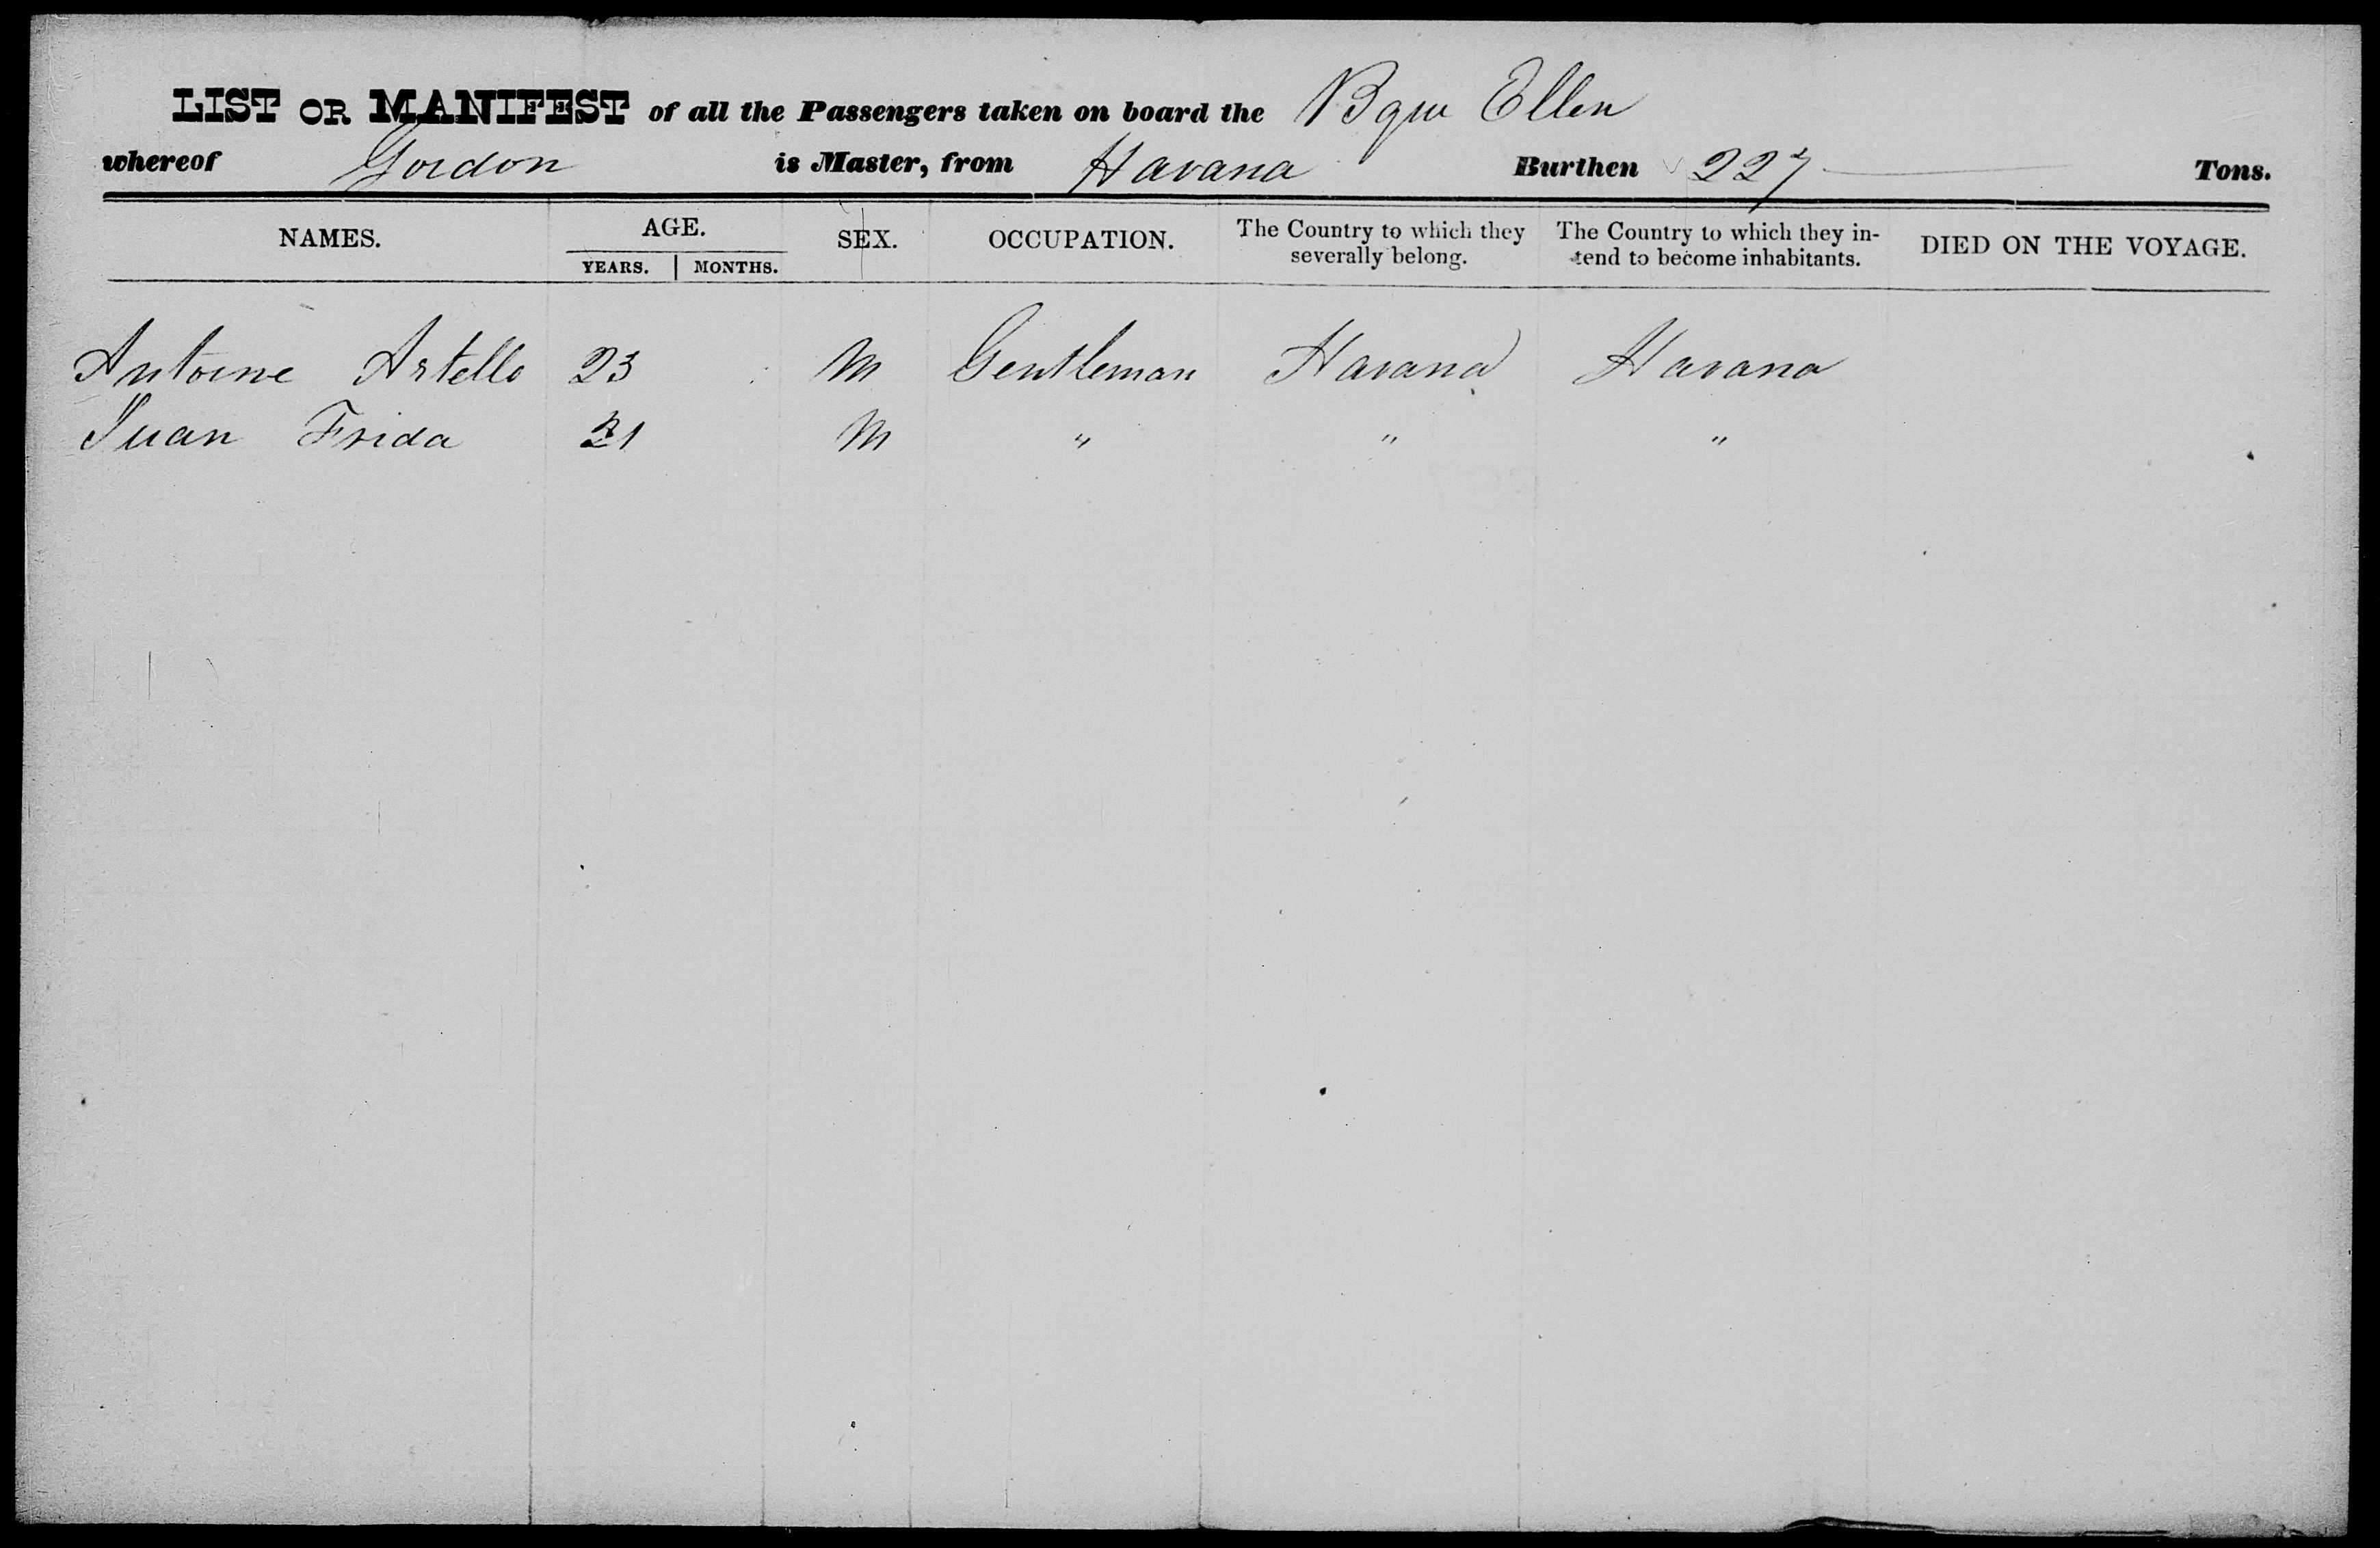 LIST OR MANIFEST of all the Passengers taken on board the Bque Ellen
whereof Gordon is Master, from Havana Burthen 227 Tons.
NAMES. AGE. SEX. OCCUPATION. The Country to which they severally belong. The Country to which they in-tend to become inhabitants. DIED ON THE VOYAGE.
YEARS. MONTHS.
Antoine Artello 23 M Gentleman Havana Havana
Juan Frida 21 M " " "